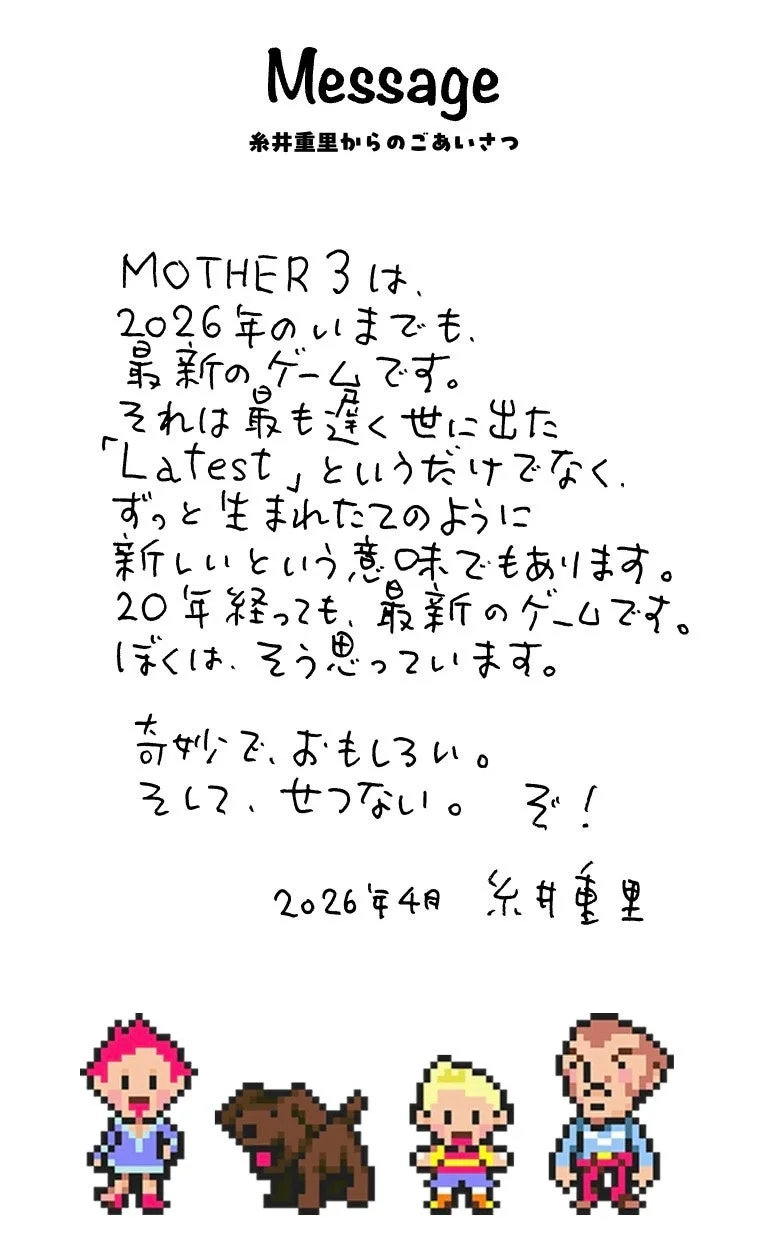 Message
糸井重里からのごあいさつ
MOTHER 3は、
2026年のいまでも、
最新のゲームです。
それは最も遅く世に出た
「Latest」というだけでなく、
ずっと生まれたてのように
新しいという意味でもあります。
20年経っても、最新のゲームです。
ぼくは、そう思っています。
奇妙で、おもしろい。
そして、せつない。 ぞ!
2026年4月 糸井重里